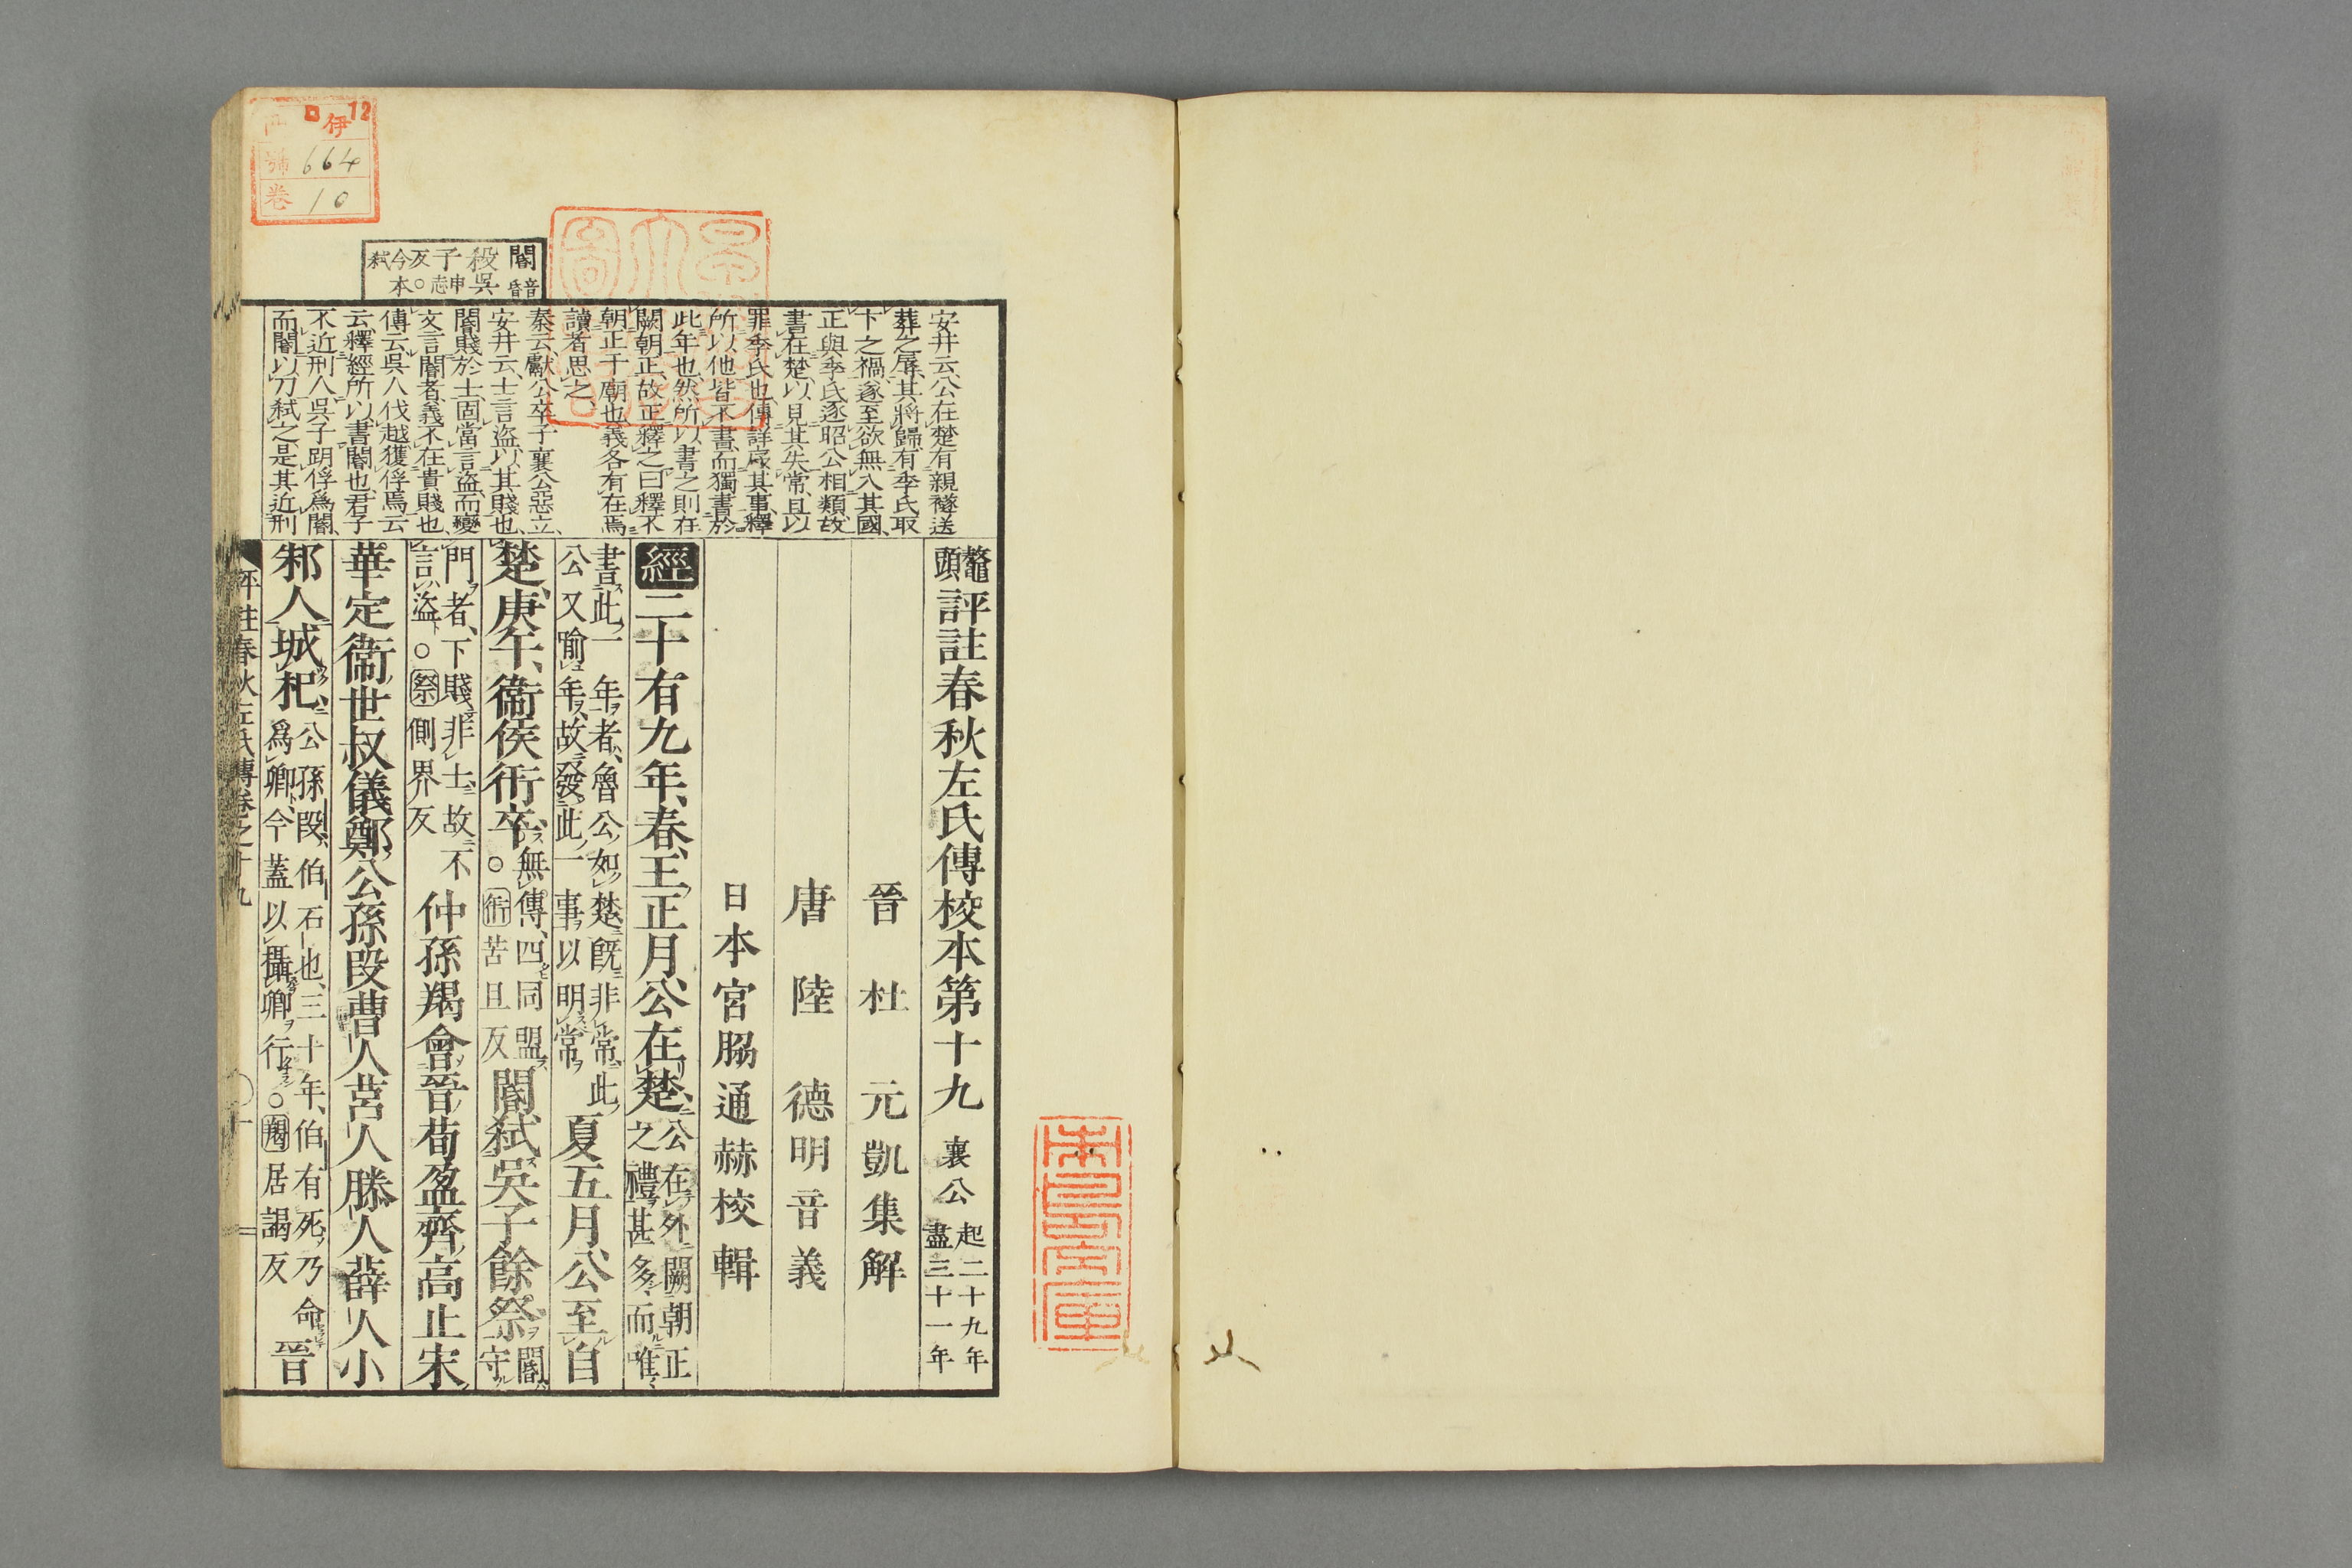 伊 12
號 664
卷 10
閽音昏
殺吳
子申志
反○
今本
弑
安井云、公在楚有親襚送
葬之辱、其將歸、有季氏取
卞之禍、遂至欲無入其國、
正與季氏逐昭公相類、故
書在楚、以見其失常、且以
罪季氏也、傳詳序其事、釋
所以他皆不書、而獨書於
此年也、然所以書之則在
闕朝正、故正釋之曰釋不
朝正于廟也、義各有在焉
讀者思之、
秦云、獻公卒、子襄公惡立、
安井云、士言盜、以其賤也、
閽賤於士、固當言盜、而變
文言閽者、義不在貴賤也、
傳云吳人伐越獲俘焉云
云、釋經所以書閽也、君子
不近刑人、吳子明俘爲閽、
而閽以刀弑之、是其近刑
鼇頭評註春秋左氏傳校本第十九 襄公 起二十九年盡三十一年
晉 杜 元凱集解
唐 陸 德明音義
日本宮脇通赫校輯
經二十有九年、春、王正月、公在楚、公在外、闕朝正之禮甚多、而唯
書此一年者、魯公如楚既非常、此公又踰年、故發此一事、以明常 夏五月、公至自
楚、庚午、衞侯衎卒、無傳、四同盟○衎苦旦反 閽弑吳子餘祭、閽守
門者、下賤非士、故不言盜○祭側界反 仲孫羯會晉荀盈齊高止宋
華定衞世叔儀鄭公孫段曹人莒人滕人薛人小
邾人城杞、公孫段、伯石也、三十年、伯有死、乃命爲卿、今蓋以攝卿行○羯居謁反 晉
評註春秋左氏傳卷之十九 一